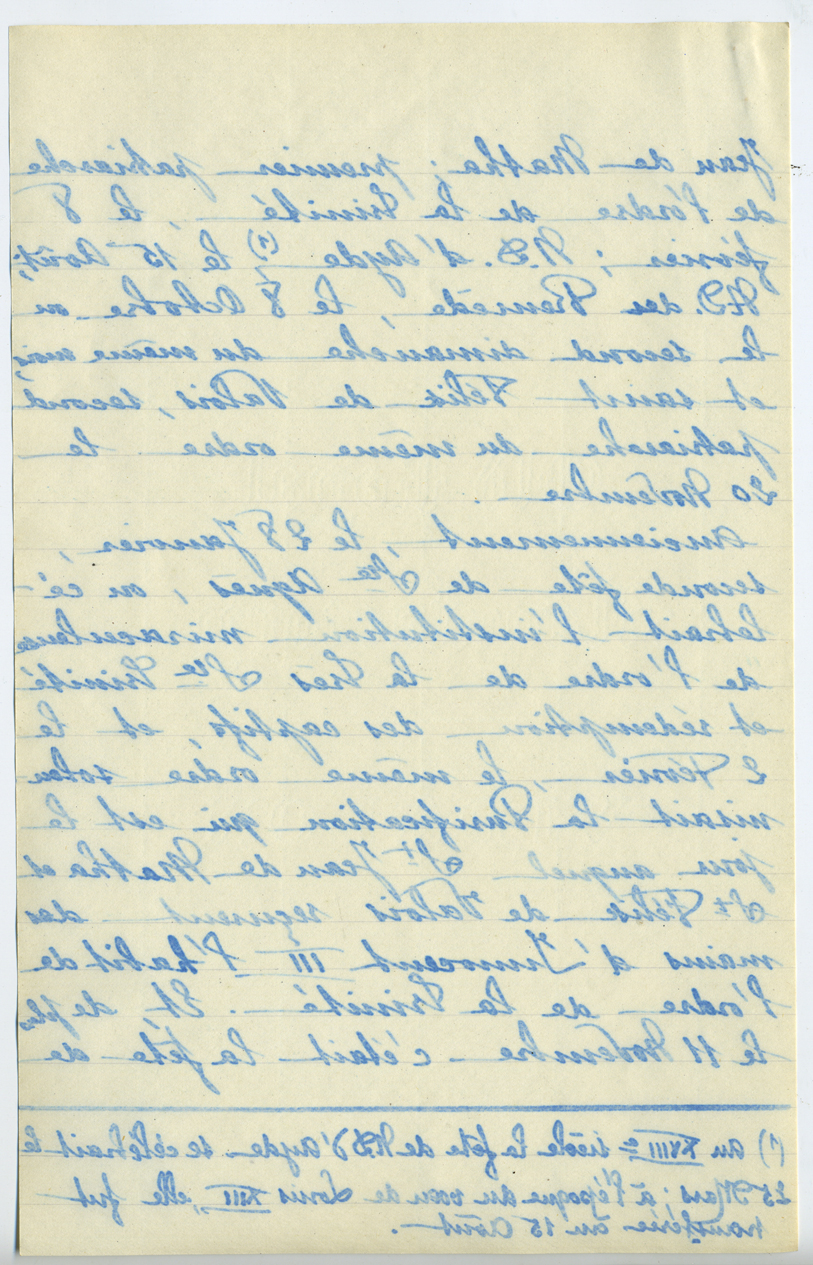 Jean de Matha ; premier patriarche
de l'ordre de la Trinité , le 8
février ; N.D. d'Ayde (1), le 15 Août ;
N.D. du Remède , le 8 Octobre ou
le second dimanche du même mois,
et saint Félix de Valois, second
patriarche du même ordre le
20 Novembre .
Anciennement , le 28 Janvier ,
seconde fête de Ste Agnès , on cé-
lébrait l'institution miraculeuse
de l'ordre de la très Ste Trinité
et rédemption des captifs, et le
2 Février , le même ordre solen
nisait la Purification qui est le
jour auquel St Jean de Matha et
St Félix de Valois reçurent des
mains d'Innocent III l'habit de
l'ordre de la Trinité . Et, de plus
le 11 Novembre c'était la fête de
(1) au XVIIIe siècle la fête de N.D. d'Ayde se célébrait le
25 Mars ; à l'époque du voeu de Louis XIII, elle fut
transférée au 15 Août .